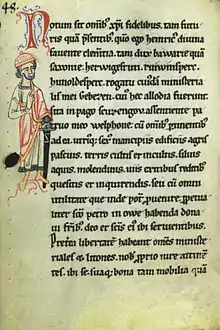 48.
Notum sit omib; xpi fidelibus. tam futu
ris qua psentib; quod ego henric; diuina
fauente clemtia tam dux bawarie quam
saxonie. herwigestrut. ruiwinsperc.
hunoldesperc. rogatu cuiusdā ministeria
lis mei Gebezen. cui; hec allodia fuerunt.
sita in pago
urio meo welphone. cū omib; ptinentib;
ad ea utriq; sex; mancipiis edificiis agris
pascuis. terris cultis et incultis. siluis
aquis. molendinis. uiis exitibus redditib;
quesitis et inquirendis. seu cū omni
utilitate que inde pot puenire. ppetua
liter sco petro in owe habenda dona
ui frib; deo et scis ei ibi seruientibus.
Preterea libertatē habeant omēs ministe
riales & litones. nob pprio iure attinen
tes. ibi se. suaq; bona tam mobilia quā